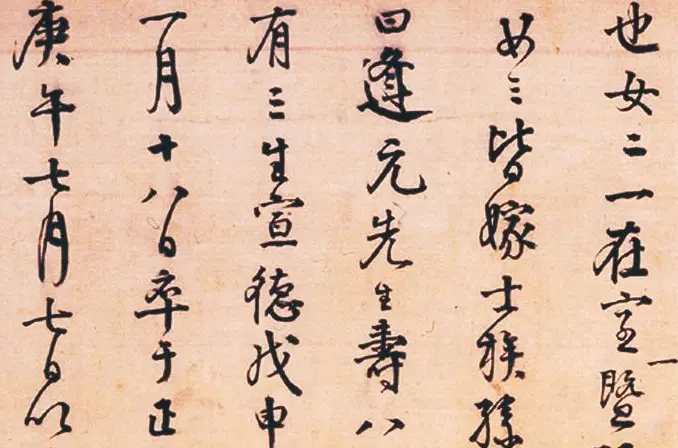 也女二一在室一暨
女三皆嫁士族孫
曰逢元先生壽八
有三生宣德戊申
一月十八日卒于正
庚午七月七日以